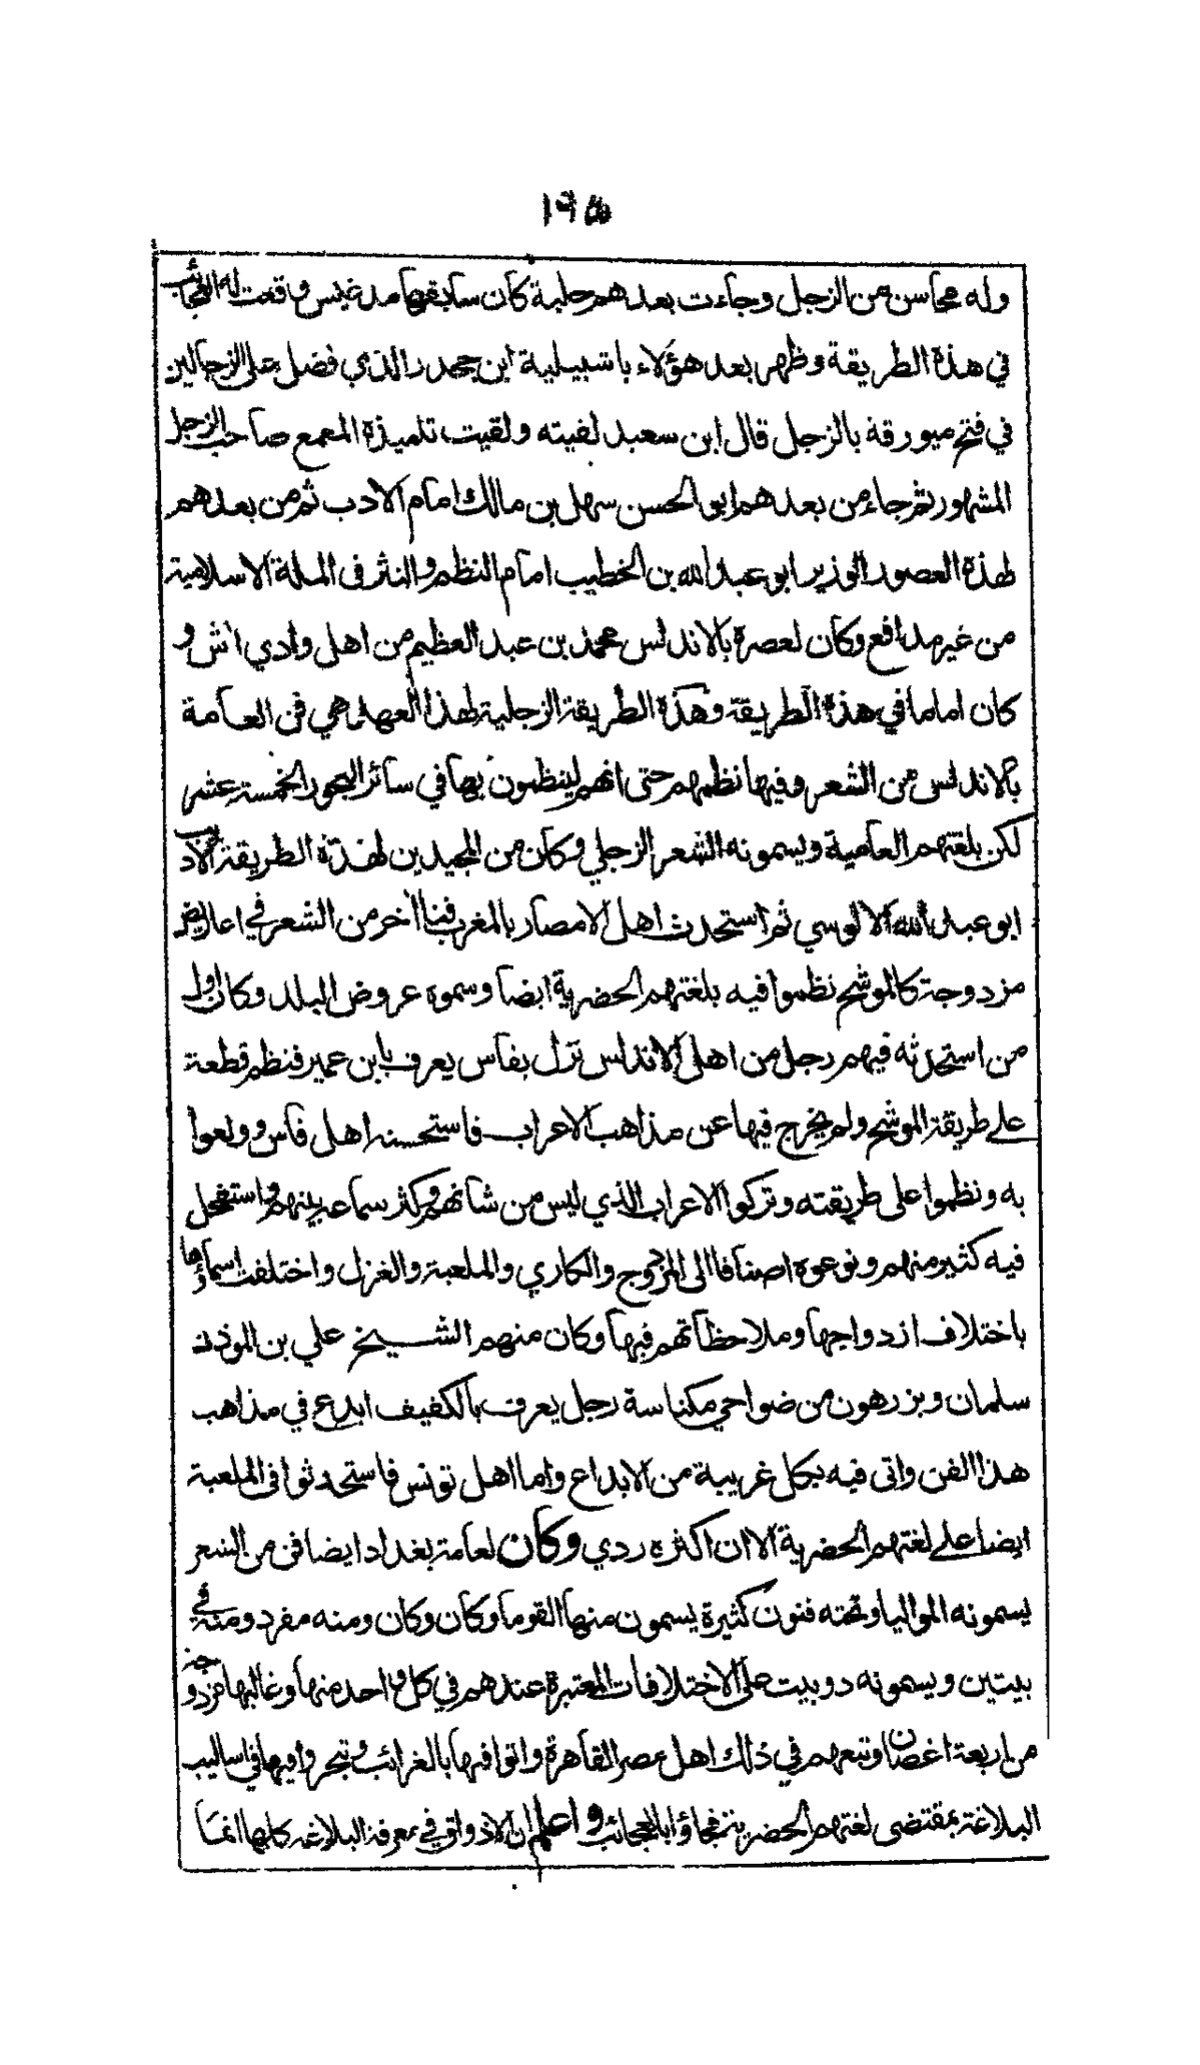 ١٩٥
وله محاسن من الزجل وجاءت بعدهم حلبة كان سابقها مدغيس وقعت له العجائب
في هذه الطريقة وظهر بعد هؤلاء باشبيلية ابن جحدر الذي فضل على الزجالين
في فتح ميورقة بالزجل قال ابن سعيد لقيته ولقيت تلميذه المعمع صاحب الزجل
المشهور ثم جاء من بعدهم ابو الحسن سهل بن مالك امام الادب ثم من بعدهم
لهذه العصور الوزير ابو عبد الله بن الخطيب امام النظم والنثر في الملة الاسلامية
من غير مدافع وكان لعصره بالاندلس محمد بن عبد العظيم من اهل وادي اش و
كان اماما في هذه الطريقة وهذه الطريقة الزجلية لهذا العهد هي فن العامة
بالاندلس من الشعر وفيها نظمهم حتى انهم لينظمون بها في سائر البحور الخمسة عشر
لكن بلغتهم العامية ويسمونه الشعر الزجلي وكان من المجيدين لهذه الطريقة الاديب
ابو عبد الله الالوسي ثم استحدث اهل الامصار بالمغرب فنا اخر من الشعر في اعاريض
مزدوجة كالموشح نظموا فيه بلغتهم الحضرية ايضا وسموه عروض البلد وكان اول
من استحدثه فيهم رجل من اهل الاندلس نزل بفاس يعرف بابن عمير فنظم قطعة
على طريقة الموشح ولم يخرج فيها عن مذاهب الاعراب فاستحسنه اهل فاس وولعوا
به ونظموا على طريقته وتركوا الاعراب الذي ليس من شانهم وكثر سماعه بينهم واستفحل
فيه كثير منهم ونوعوه اصنافا الى المزجوج والكاري والملعبة والغزل واختلفت اسماؤها
باختلاف ازدواجها وملاحظاتهم فيها وكان منهم الشيخ علي بن الموذن
سلمان وبزرهون من ضواحي مكناسة رجل يعرف بالكفيف ابدع في مذاهب
هذا الفن واتى فيه بكل غريبة من الابداع واما اهل تونس فاستحدثوا في الملعبة
ايضا على لغتهم الحضرية الا ان اكثره ردي وكان لعامة بغداد ايضا فن من الشعر
يسمونه المواليا وتحته فنون كثيرة يسمون منها القوما وكان وكان ومنه مفرد ومنه في
بيتين ويسمونه دوبيت على الاختلافات المعتبرة عندهم في كل واحد منها وغالبها مزدوجة
من اربعة اغصان وتبعهم في ذلك اهل مصر القاهرة واتوا فيها بالغرائب وتبحروا فيها في اساليب
البلاغة بمقتضى لغتهم الحضرية فجاؤا بالعجائب واعلم ان الاذواق في معرفة البلاغة كلها انما